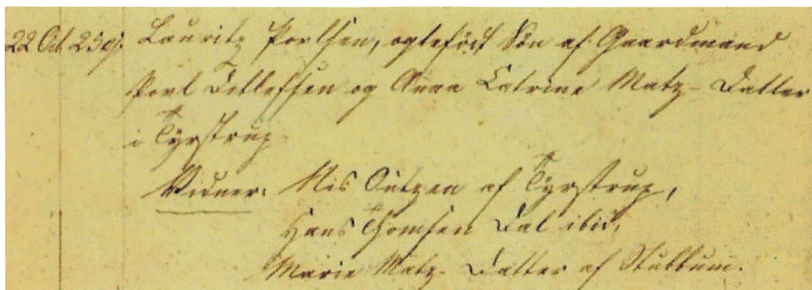 22 Oct. 23 ej. Lauritz Poulsen, ægtefödt Sön af Gaardmand
Poul Detleffsen og Anna Catrine Matz-Datter
i Tyrstrup.
Vidner: Nis Outzen af Tyrstrup,
Hans Thomsen Dal ibid.
Marie Matz-Datter af Stubbum.